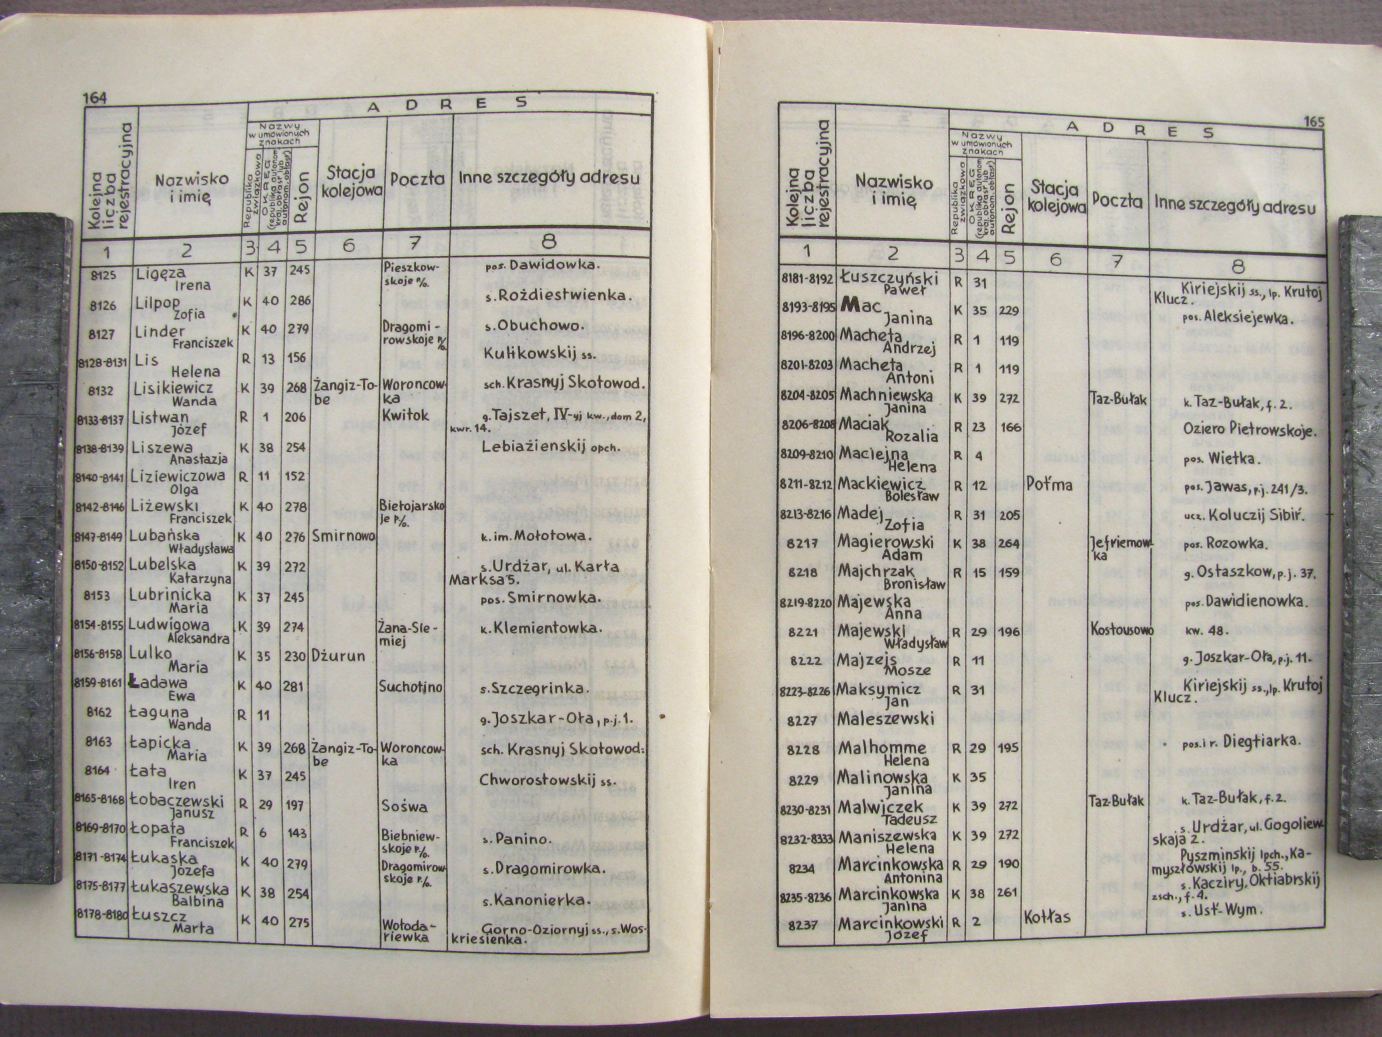 164
A D R E S
Kolejna liczba rejestracyjna
Nazwisko i imię
Nazwy w umówionych znakach
Republika związkowa
OKRĘG (republika autonom. kraj, obłast' lub autonom. obłast')
Rejon
Stacja kolejowa
Poczta
Inne szczegóły adresu
1 2 3 4 5 6 7 8
8125 Ligęza Irena K 37 245 Pieszkow-skoje p/o. pos. Dawidowka.
8126 Lilpop Zofia K 40 286 s. Rożdiestwienka.
8127 Linder Franciszek K 40 279 Dragomi-rowskoje p/o. s. Obuchowo.
8128-8131 Lis Helena R 13 156 Kulikowskij ss.
8132 Lisikiewicz Wanda K 39 268 Żangiz-To-be Woroncow-ka sch. Krasnyj Skotowod.
8133-8137 Listwan Józef R 1 206 Kwitok g. Tajszet, IV-yj kw., dom 2, kwr. 14.
8138-8139 Liszewa Anastazja K 38 254 Lebiażienskij opch.
8140-8141 Liziewiczowa Olga R 11 152
8142-8146 Liżewski Franciszek K 40 278 Biełojarsko je p/o.
8147-8149 Lubańska Władysława K 40 276 Smirnowo k. im. Mołotowa.
8150-8152 Lubelska Katarzyna K 39 272 s. Urdżar, ul. Karła Marksa 5.
8153 Lubrinicka Maria K 37 245 pos. Smirnowka.
8154-8155 Ludwigowa Aleksandra K 39 274 Żana-Sie-miej k. Klemientowka.
8156-8158 Lulko Maria K 35 230 Dżurun
8159-8161 Ładawa Ewa K 40 281 Suchotino s. Szczegrinka.
8162 Łaguna Wanda R 11 g. Joszkar-Oła, p.j. 1.
8163 Łapicka Maria K 39 268 Żangiz-To-be Woroncow-ka sch. Krasnyj Skotowod.
8164 Łata Iren K 37 245 Chworostowskij ss.
8165-8168 Łobaczewski Janusz R 29 197 Sośwa
8169-8170 Łopata Franciszek R 6 143 Biebniew-skoje p/o. s. Panino.
8171-8174 Łukaska Józefa K 40 279 Dragomirow skoje p/o. s. Dragomirowka.
8175-8177 Łukaszewska Balbina K 38 254 s. Kanonierka.
8178-8180 Łuszcz Marta K 40 275 Wołoda-riewka Gorno-Oziornyj ss., s. Wos-kriesienka.
165
A D R E S
Kolejna liczba rejestracyjna
Nazwisko i imię
Nazwy w umówionych znakach
Republika związkowa
OKRĘG (republika autonom. kraj, obłast' lub autonom. obłast')
Rejon
Stacja kolejowa
Poczta
Inne szczegóły adresu
1 2 3 4 5 6 7 8
8181-8192 Łuszczyński Paweł R 31 Kiriejskij ss., lp. Krutoj Klucz.
8193-8195 Mac Janina K 35 229 pos. Aleksiejewka.
8196-8200 Macheta Andrzej R 1 119
8201-8203 Macheta Antoni R 1 119
8204-8205 Machniewska Janina K 39 272 Taz-Bułak k. Taz-Bułak, f. 2.
8206-8208 Maciak Rozalia R 23 166 Oziero Pietrowskoje.
8209-8210 Maciejna Helena R 4 pos. Wietka.
8211-8212 Mackiewicz Bolesław R 12 Pot'ma pos. Jawas, p.j. 241/3.
8213-8216 Madej Zofia R 31 205 ucz. Koluczij Sibir'.
8217 Magierowski Adam K 38 264 Jefriemow-ka pos. Rozowka.
8218 Majchrzak Bronisław R 15 159 g. Ostaszkow, p.j. 37.
8219-8220 Majewska Anna pos. Dawidienowka.
8221 Majewski Władysław R 29 196 Kostousowo kw. 48.
8222 Majzejs Mosze R 11 g. Joszkar-Oła, p.j. 11.
8223-8226 Maksymicz Jan R 31 Kiriejskij ss., lp. Krutoj Klucz.
8227 Maleszewski
8228 Malhomme Helena R 29 195 pos. i r. Diegtiarka.
8229 Malinowska Janina K 35
8230-8231 Malwiczek Tadeusz K 39 272 Taz-Bułak k. Taz-Bułak, f. 2.
8232-8333 Maniszewska Helena K 39 272 s. Urdżar, ul. Gogoliew-skaja 2.
8234 Marcinkowska Antonina R 29 190 Pyszminskij lpch., Ka-myszłowskij lp., b. 55.
8235-8236 Marcinkowska Janina K 38 261 s. Kacziry, Oktiabrskij zsch., f. 4.
8237 Marcinkowski Józef R 2 Kotłas s. Ust'-Wym.